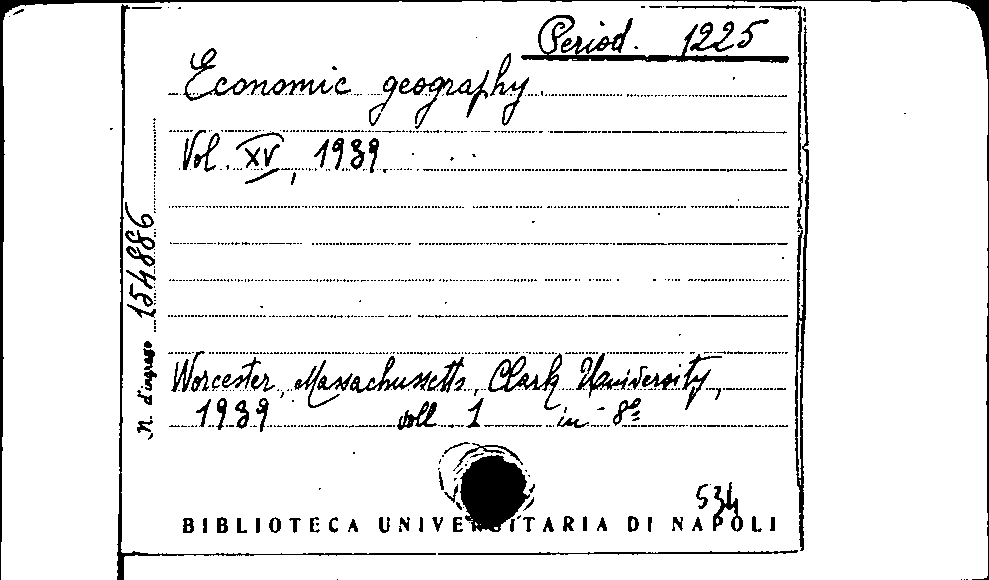 Period. 1225
Economic geography.
Vol. XV, 1939.
N. d'ingresso 154886
Worcester, Massachussetts, Clark University,
1939 voll. 1 in-8º
534
BIBLIOTECA UNIVERSITARIA DI NAPOLI